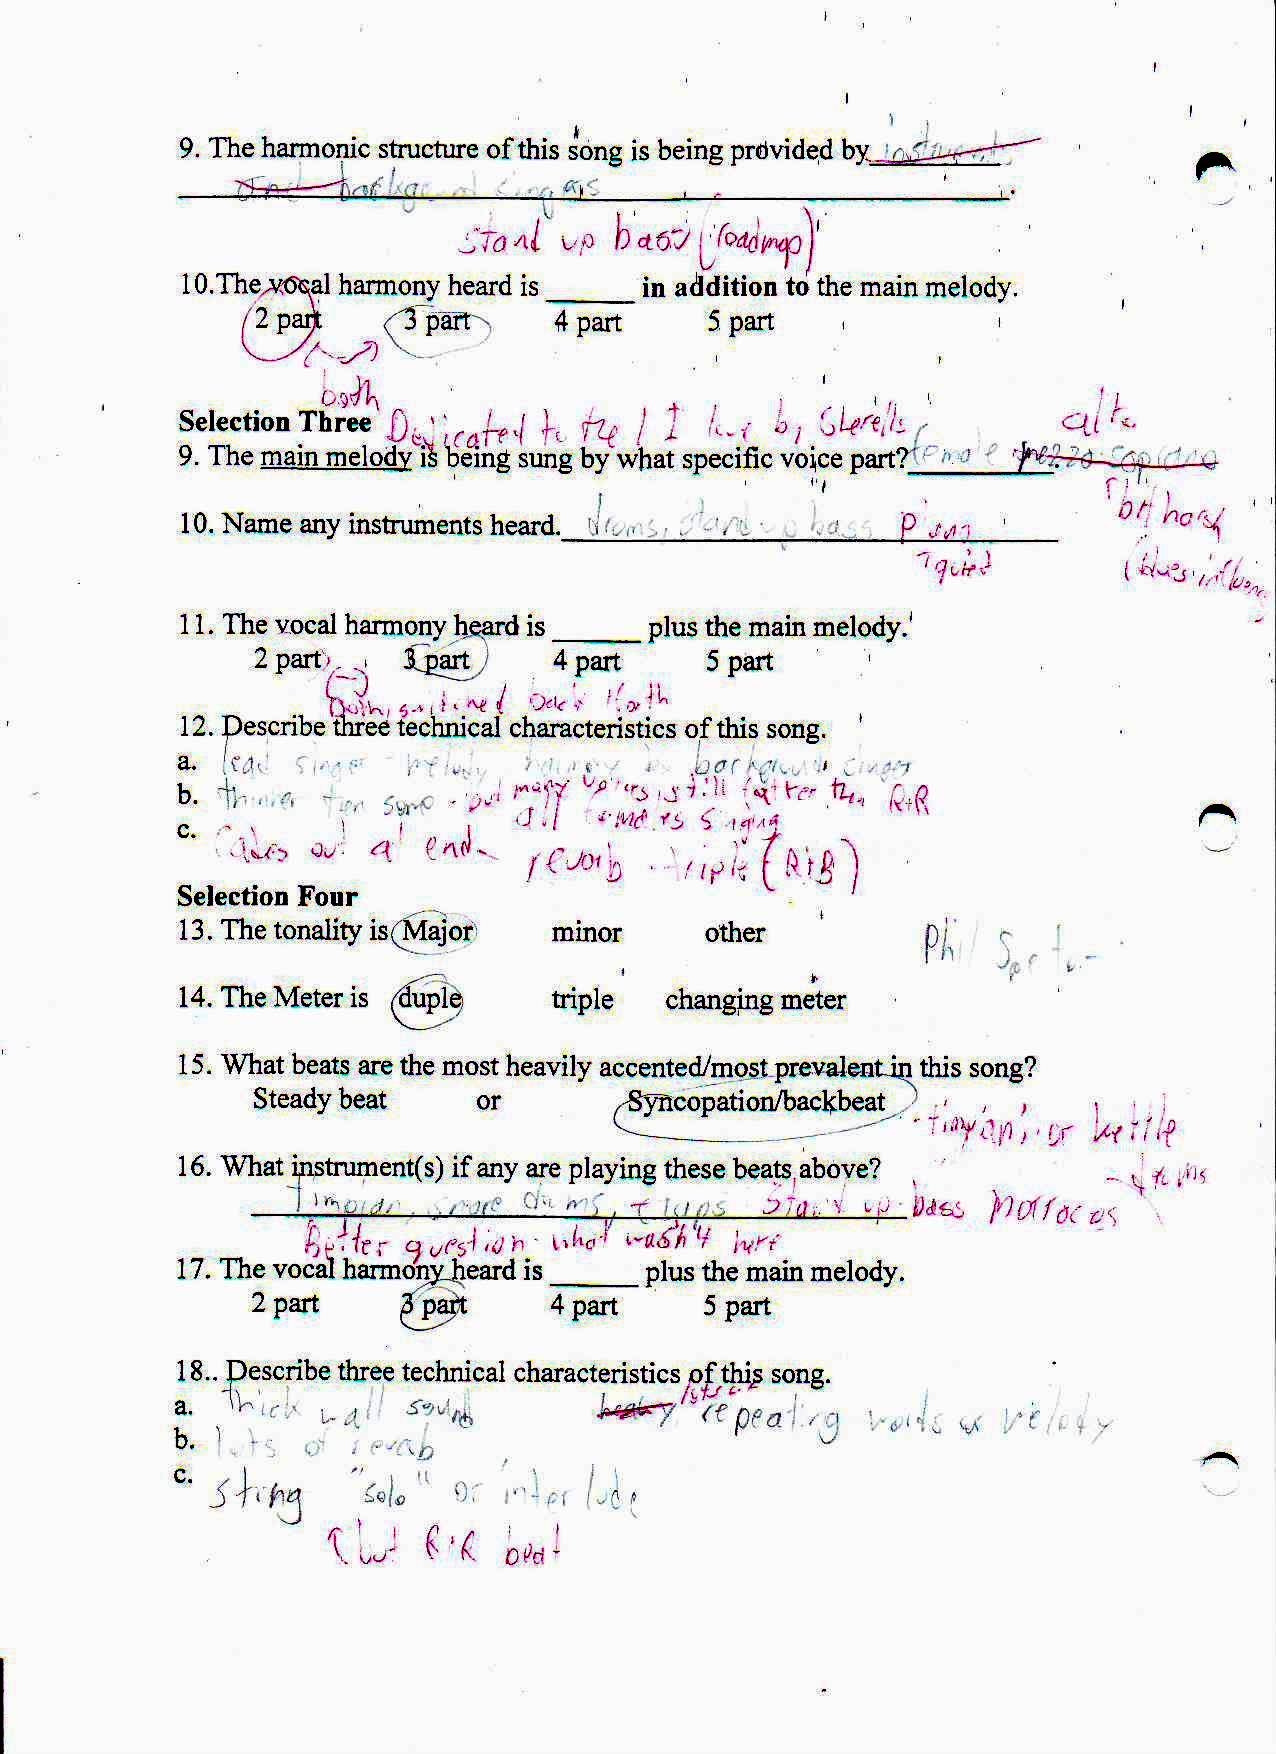 9. The harmonic structure of this song is being provided by instruments
and background singers.
Stand up bass (roadmap)
10.The vocal harmony heard is ______ in addition to the main melody.
2 part 3 part 4 part 5 part
both
Selection Three Dedicated to the 1 I love by Sherells alto
9. The main melody is being sung by what specific voice part? female mezzo soprano
but harsh
10. Name any instruments heard. drums, stand up bass Piano
(blues influence
11. The vocal harmony heard is ______ plus the main melody.
2 part 3 part 4 part 5 part
12. Describe three technical characteristics of this song.
a. lead singer melody, harmony by background singer
b. thinner than some - but many voices still fatter than R+R
all times singing
c. fades out at end reverb triple (R+B)
Selection Four
13. The tonality is Major minor other
Phil Spector
14. The Meter is duple triple changing meter
15. What beats are the most heavily accented/most prevalent in this song?
Steady beat or Syncopation/backbeat - timpani or kettle
drums
16. What instrument(s) if any are playing these beats above?
Timpani, snare drums, claps Stand up bass Marrocas
Better question what wasn't here
17. The vocal harmony heard is ______ plus the main melody.
2 part 3 part 4 part 5 part
18.. Describe three technical characteristics of this song.
a. thick wall sound heavy lots repeating words w melody
b. lots of reverb
c. string "solo" or interlude
but R+R beat